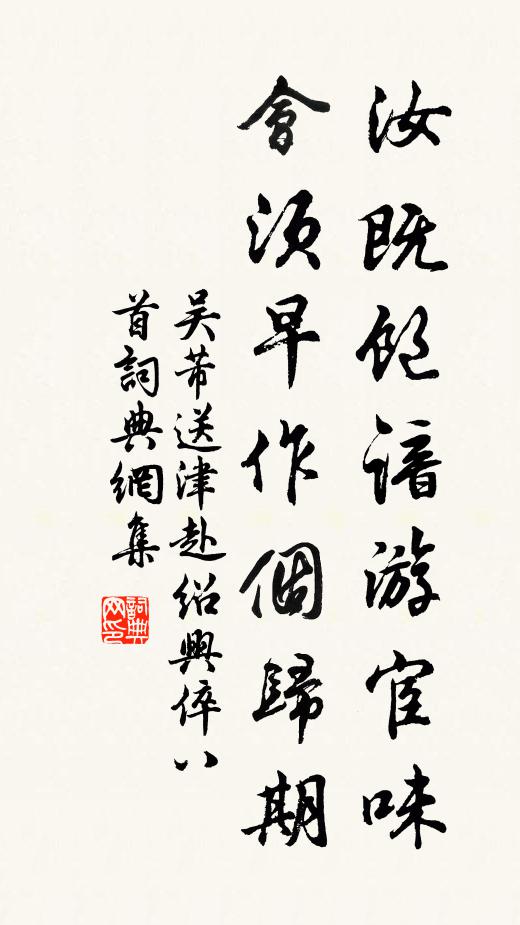 汝既飽諳游宦味
會須早作個歸期
吴芾送津赴紹興倅八
首詞典網集
詞典
网印